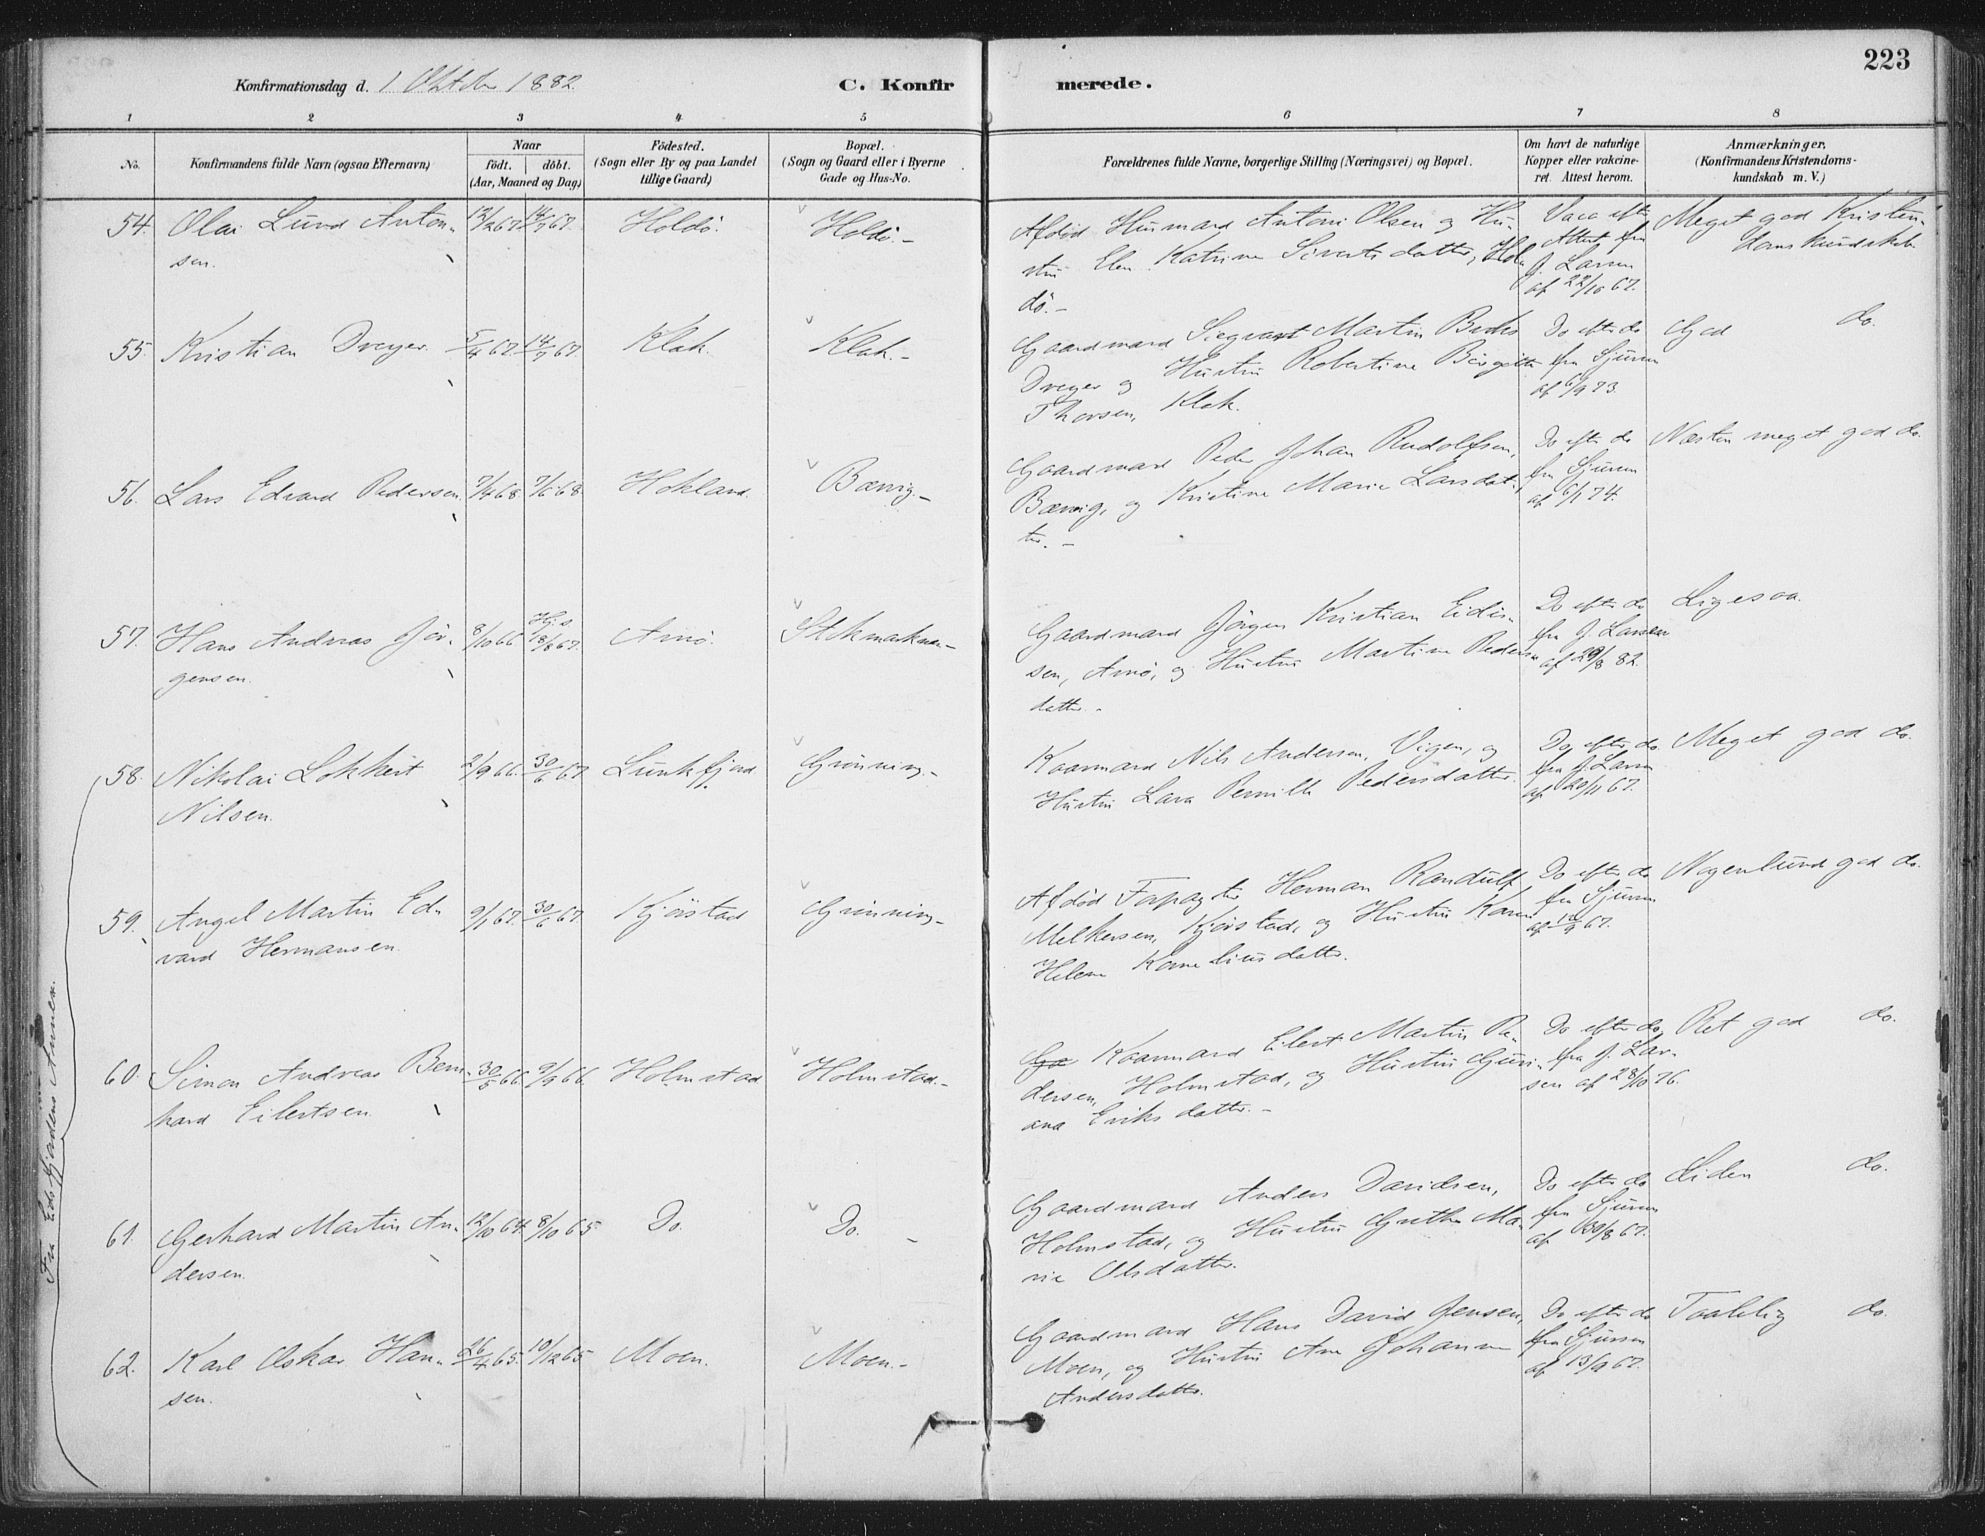 223
Konfirmationsdag d. 1 Oktober 1882.
C. Konfirmerede.
1 2 3 4 5 6 7 8
No.
Konfirmandens fulde Navn (ogsaa Efternavn)
Naar
födt. döbt.
(Aar, Maaned og Dag)
Födested.
(Sogn eller By og paa Landet
tillige Gaard)
Bopæl.
(Sogn og Gaard eller i Byerne
Gade og Hus-No.
Forældrenes fulde Navne, borgerlige Stilling (Næringsvei) og Bopæl.
Om havt de naturlige
Kopper eller vakcine-
ret. Attest herom.
Anmærkninger,
(Konfirmandens Kristendoms-
kundskab m. V.)
54. Olai Lund Anton- 12/2 67. 14/7 67. Holdö. Holdö.- Afdød Husmand Antoni Olsen og Hu- Vacc efter Meget god Kristen-
sen. stru Elen Katrine Siverts datter, Hol Attest fra doms kundskab
dö.- J. Larsen
af 22/10 67.
55. Kristian Dreyer. 5/4 67. 14/7 67. Klak. Klak.- Gaardmand Martin Do efter do God do.
Dreyer og Hustru Robertine Birgitte fra Sjursen
Thorsen, Klak. af 6/9 73.
56. Lars Edvard Pedersen. 7/4 68. 7/6 68 Hokland. Bœvig.- Gaardmand Peder Johan Rudolfsen, Do efter do Næsten meget god do.
Bœvig, og Kristine Marie Larsdat- fra Sjursen
ter.- af 6/1 74.
57. Hans Andreas Jör- 8/10 66 Hjs 18/8 67. Arnö. Stokmarknæs- Gaardmand Jörgen Kristian Eidis- Do efter do Ligesaa.
gensen. sen, Arnö, og Hustru Martine Peders fra J. Larsen
datter.- af 29/8 82.
58. Nikolai Lokkert 2/9 66. 30/6 67 Lunkfjord Grönning- Kaarmand Nils Andersen, Vigen, og Do efter do Meget god do.
Nilsen. Hustru Lava Pernille Pedersdatter. fra J. Larsen
af 20/11 67.
59. Angel Martin Ed- 9/1 67. 30/6 67 Kjörstad Grönning- Afdød Herman Randulf Do efter do Nogenlund god do.
vard Hermansen. Melkersen, Kjörstad, og Hustru Karen fra Sjursen
Helene Korneliusdatter. 67.
60. Simon Andreas Bern- 30/5 66. 9/9 66. Holmstad Holmstad.- Kaarmand Eilert Martin Pe- Do efter do Ret god do.
hard Eilertsen. dersen, Holmstad, og Hustru Guri- fra J. Lar-
ana Eriksdatter.- sen af 28/10 76.
61. Gerhard Martin An- 12/10 64. 8/10 65 Do. Do. - Gaardmand Anders Davidsen, Do efter do Liden do.
dersen. Holmstad, og Hustru Grethe Ma- fra Sjursen
rie Olsdatter. af 30/8 67.
62. Karl Oskar Han- 26/4 65. 10/12 65 Moen. Moen.- Gaardmand Hans David Jensen, Do efter do Taalelig do.
sen. Moen, og Hustru Ane Johanne fra Sjursen
Andersdatter. af 13/9 67.
Fra Eidsfjordens Annex.